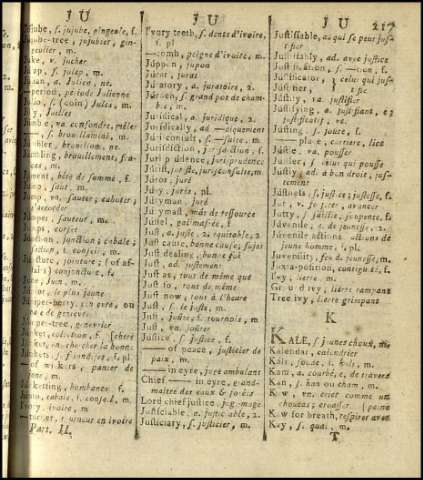 J U
J U
J U
217
Jujube, s. jujube, gingeole, f.
Jujube-tree, jujubier, gin-
geolier, m.
Juke, v. jucher
Julap, s. julap, m.
Julian, a. julienne
period, période Julienne
Julio, s. (coin) Jules, m.
July, Juillet
Jumble, va. confondre, mêler
s. brouillamini, m.
Jumbler, brouillon, ne
Jumbling, brouillement, fra-
cas, m.
Jument, bête de somme, f.
Jump, saut, m.
Jump, vn. sauter, caboter;
s'accorder
Jumper, sauteur, m.
Jumps, corset
Junction, jonction; cabale;
Juncture, jointure; (of af-
fairs) conjoncture, f.
June, Juin, m.
Junior, le plus jeune
Juniper-berry, genevre, ou
ne de genievre
Juniper-tree, genevrier
Junket, collation, f.
Junket, vn. chercher la bonne
Junkets, s. friandises, f. pl.
of wikers, panier de
jonc, m.
Junketting, bombance, f.
Junto, cabale, f. conseil, m.
Ivory, ivoire, m
turner, tourneur en ivoire
Part. II.
Ivory teeth, s. dents d'ivoire,
f. pl
comb, peigne d'ivoire, m.
Juppon, jupon
Jurat, jurat
Juratory, a. juratoire, 2.
Jurden, s. grand pot de cham-
bre, m.
Juridical, a. juridique, 2.
Juridically, ad —iquement
Juriconsult, s. —sulte, m.
Jurisdiction, jurisdiction, f.
Jurisprudence, jurisprudence
Jurist, juriste, jurisconsulte, m.
Juror, juré
Jury, jurés, pl.
Juryman, juré
Jurymast, mâts de ressource
Just, a. juste, 2. équitable, 2.
Just cause, bonne cause; sujet
Just dealing, bonne foi
Just, ad. justement
Just as, tout de même que
Just so, tout de même
Just now, tout à l'heure
Just, s. le juste, m.
Just, joûte, f. tournois, m.
Just, vn. joûter
Justice, justice, f.
— of peace, justicier de
paix, m.
— in eyre, juge ambulant
Chief — in eyre, grand-
maître des eaux & forêts
Lord chief justice, jug-mage
Justiciable, a. justiciable, 2.
Justiciary, s. justicier, m.
Justifiable, as qui se peut jus-
tifier
Justifiably, ad. avec justice
Justification, s. —tion, f.
Justificator, } celui qui jus-
Justifier, } tifie
Justify, va. justifier
Justifying, a. justifiant, e;
justificatif, ve.
Justing, s. joûte, f.
place, carriere, lice
Justle, va. pousser
Justler, s. celui qui pousse
Justly, ad. à bon droit, jus-
tement
Justness, s. justice; justesse, f.
Jut, v. forjeter, avancer
Jutty, s. saillie, soupente, f.
Juvenile, a. de jeunesse, 2.
Juvenile actions, actions de
jeune homme, f. pl.
Juvenility, feu de jeunesse, m.
Juxta-position, contiguité, f.
Ivy, lierre, m.
Ground ivy, lierre rampant
Tree ivy, lierre grimpant
K
KALE, s. jeunes choux, m.
Kalendar, calendrier
Kali, soude, f. kali, m.
Kam, a. courbé, e. de travers
Kan, s. han ou cham, m.
Kaw, vn. crier comme un
choucas; croasser
Kaw for breath, respirer avec peine
Kay, s. quai, m.
T